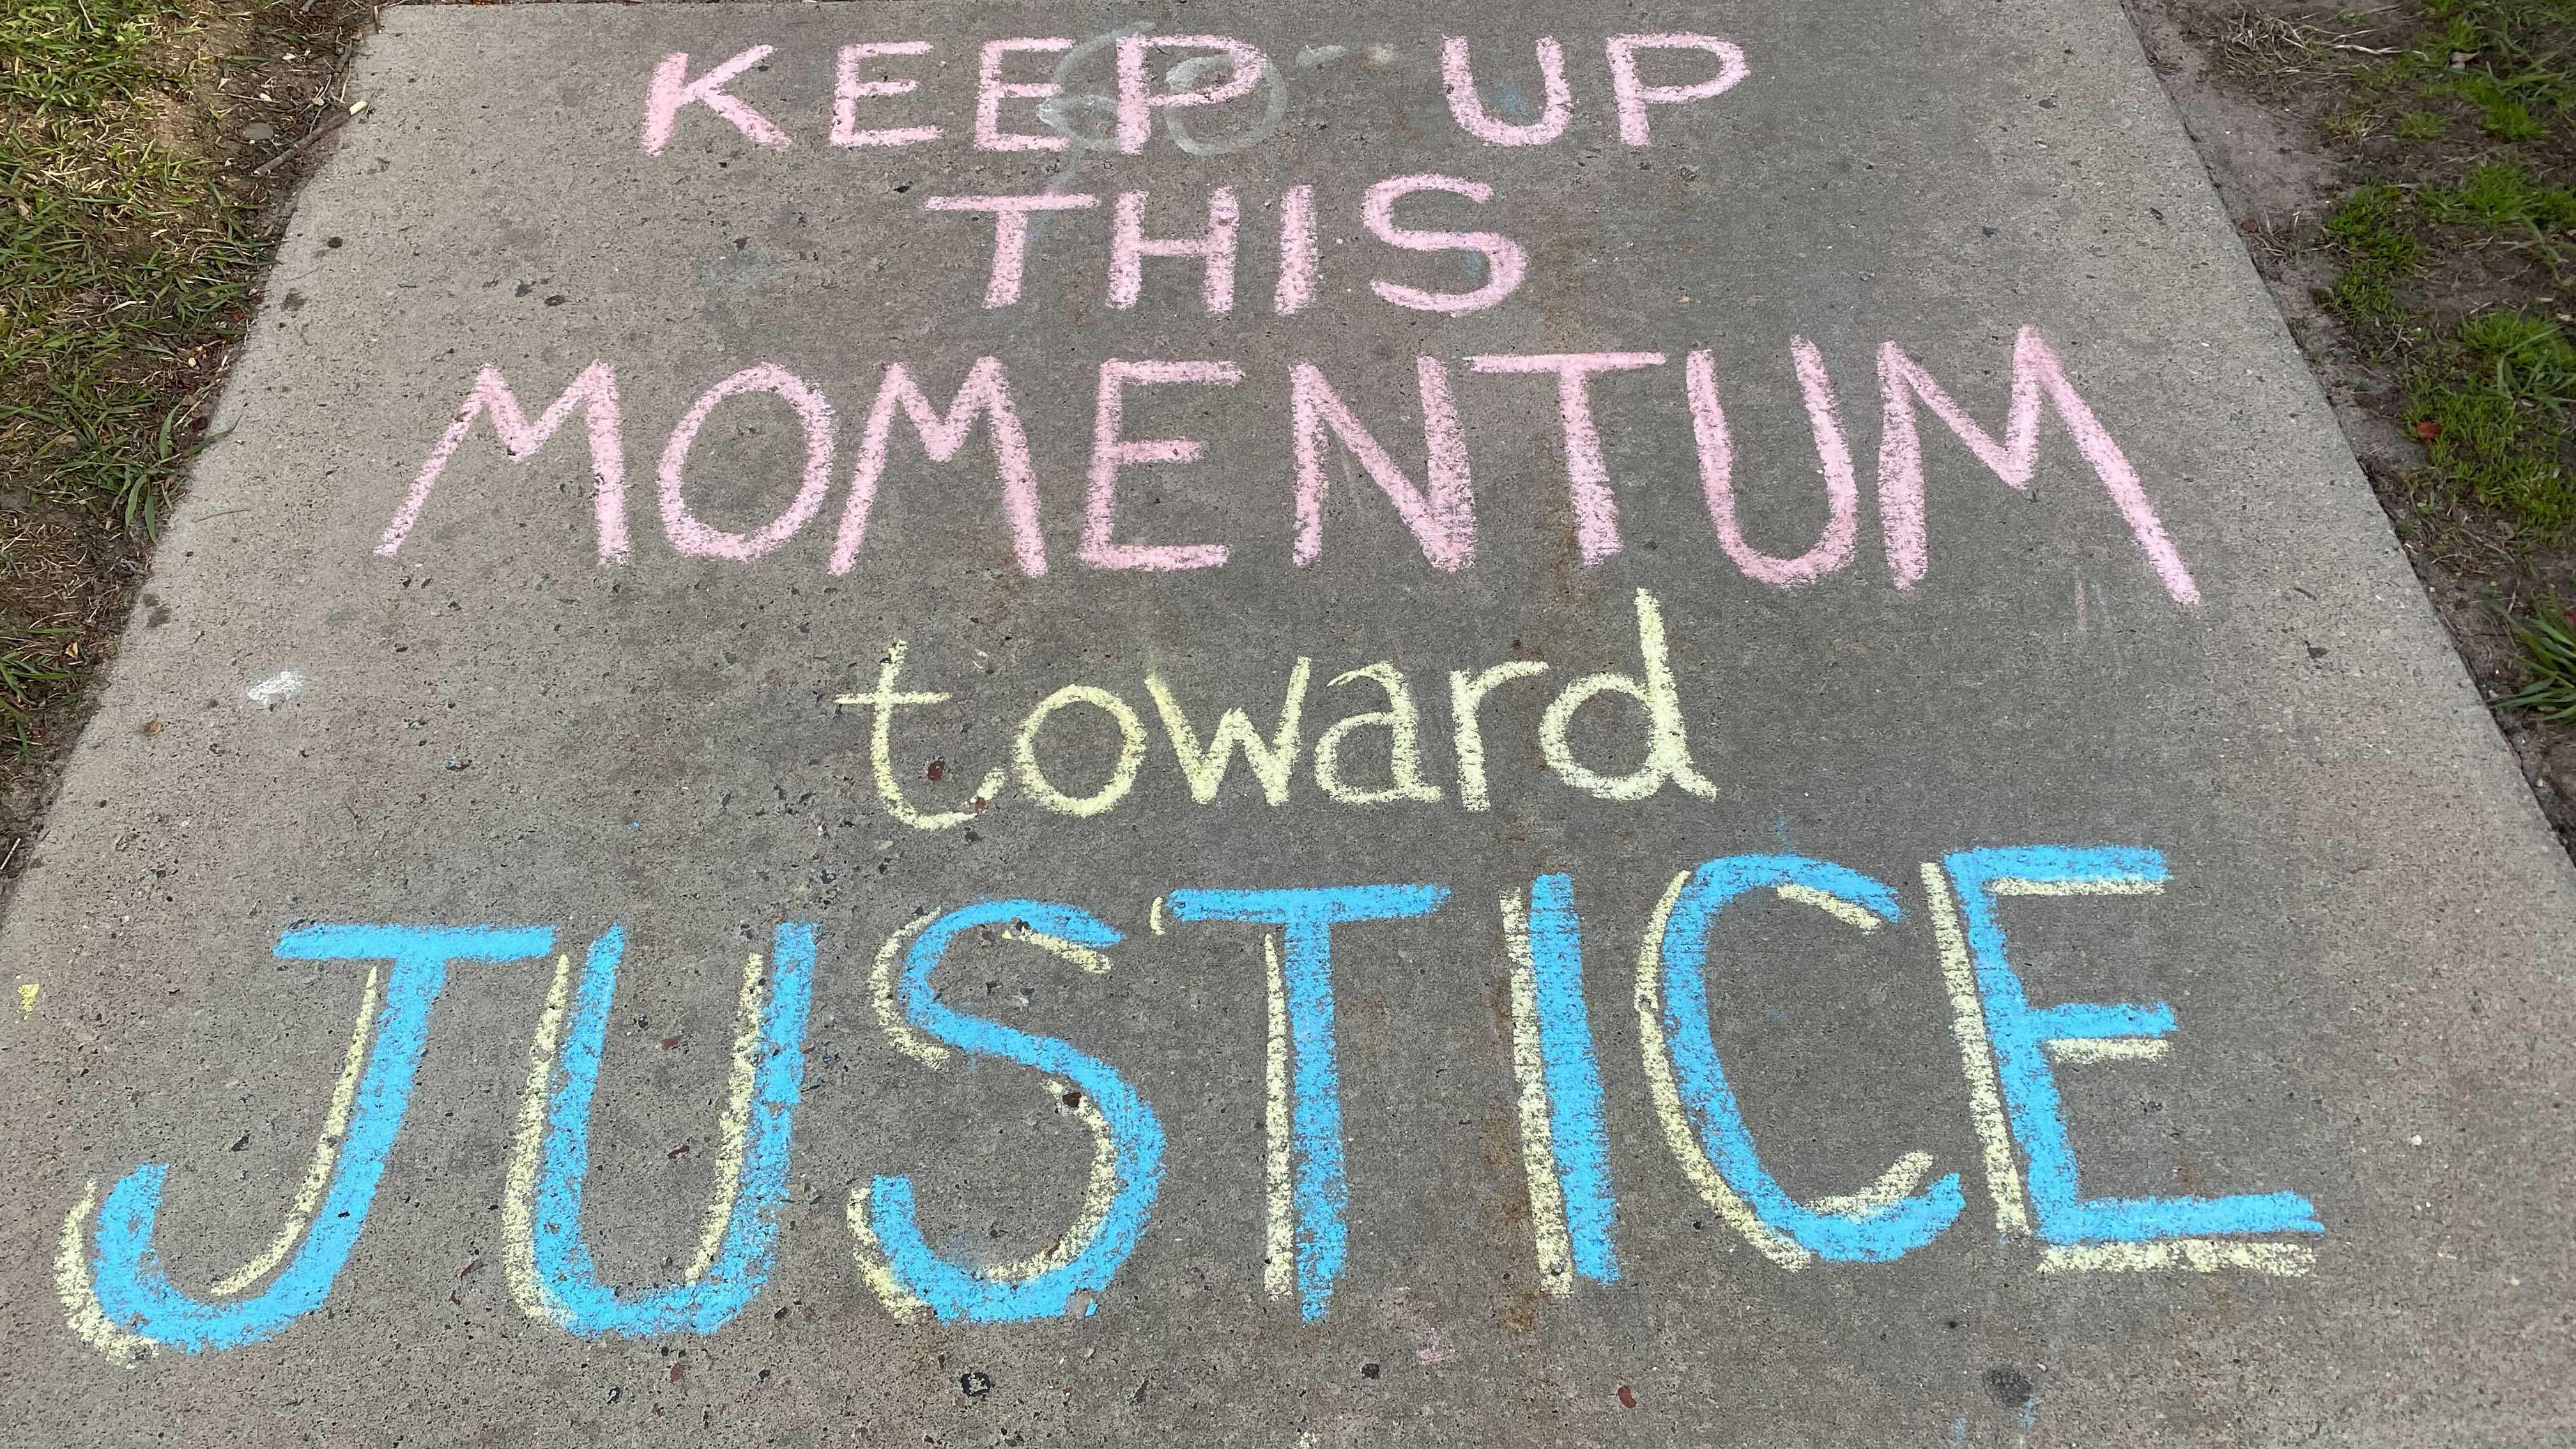 KEEP UP
THIS
MOMENTUM
toward
JUSTICE